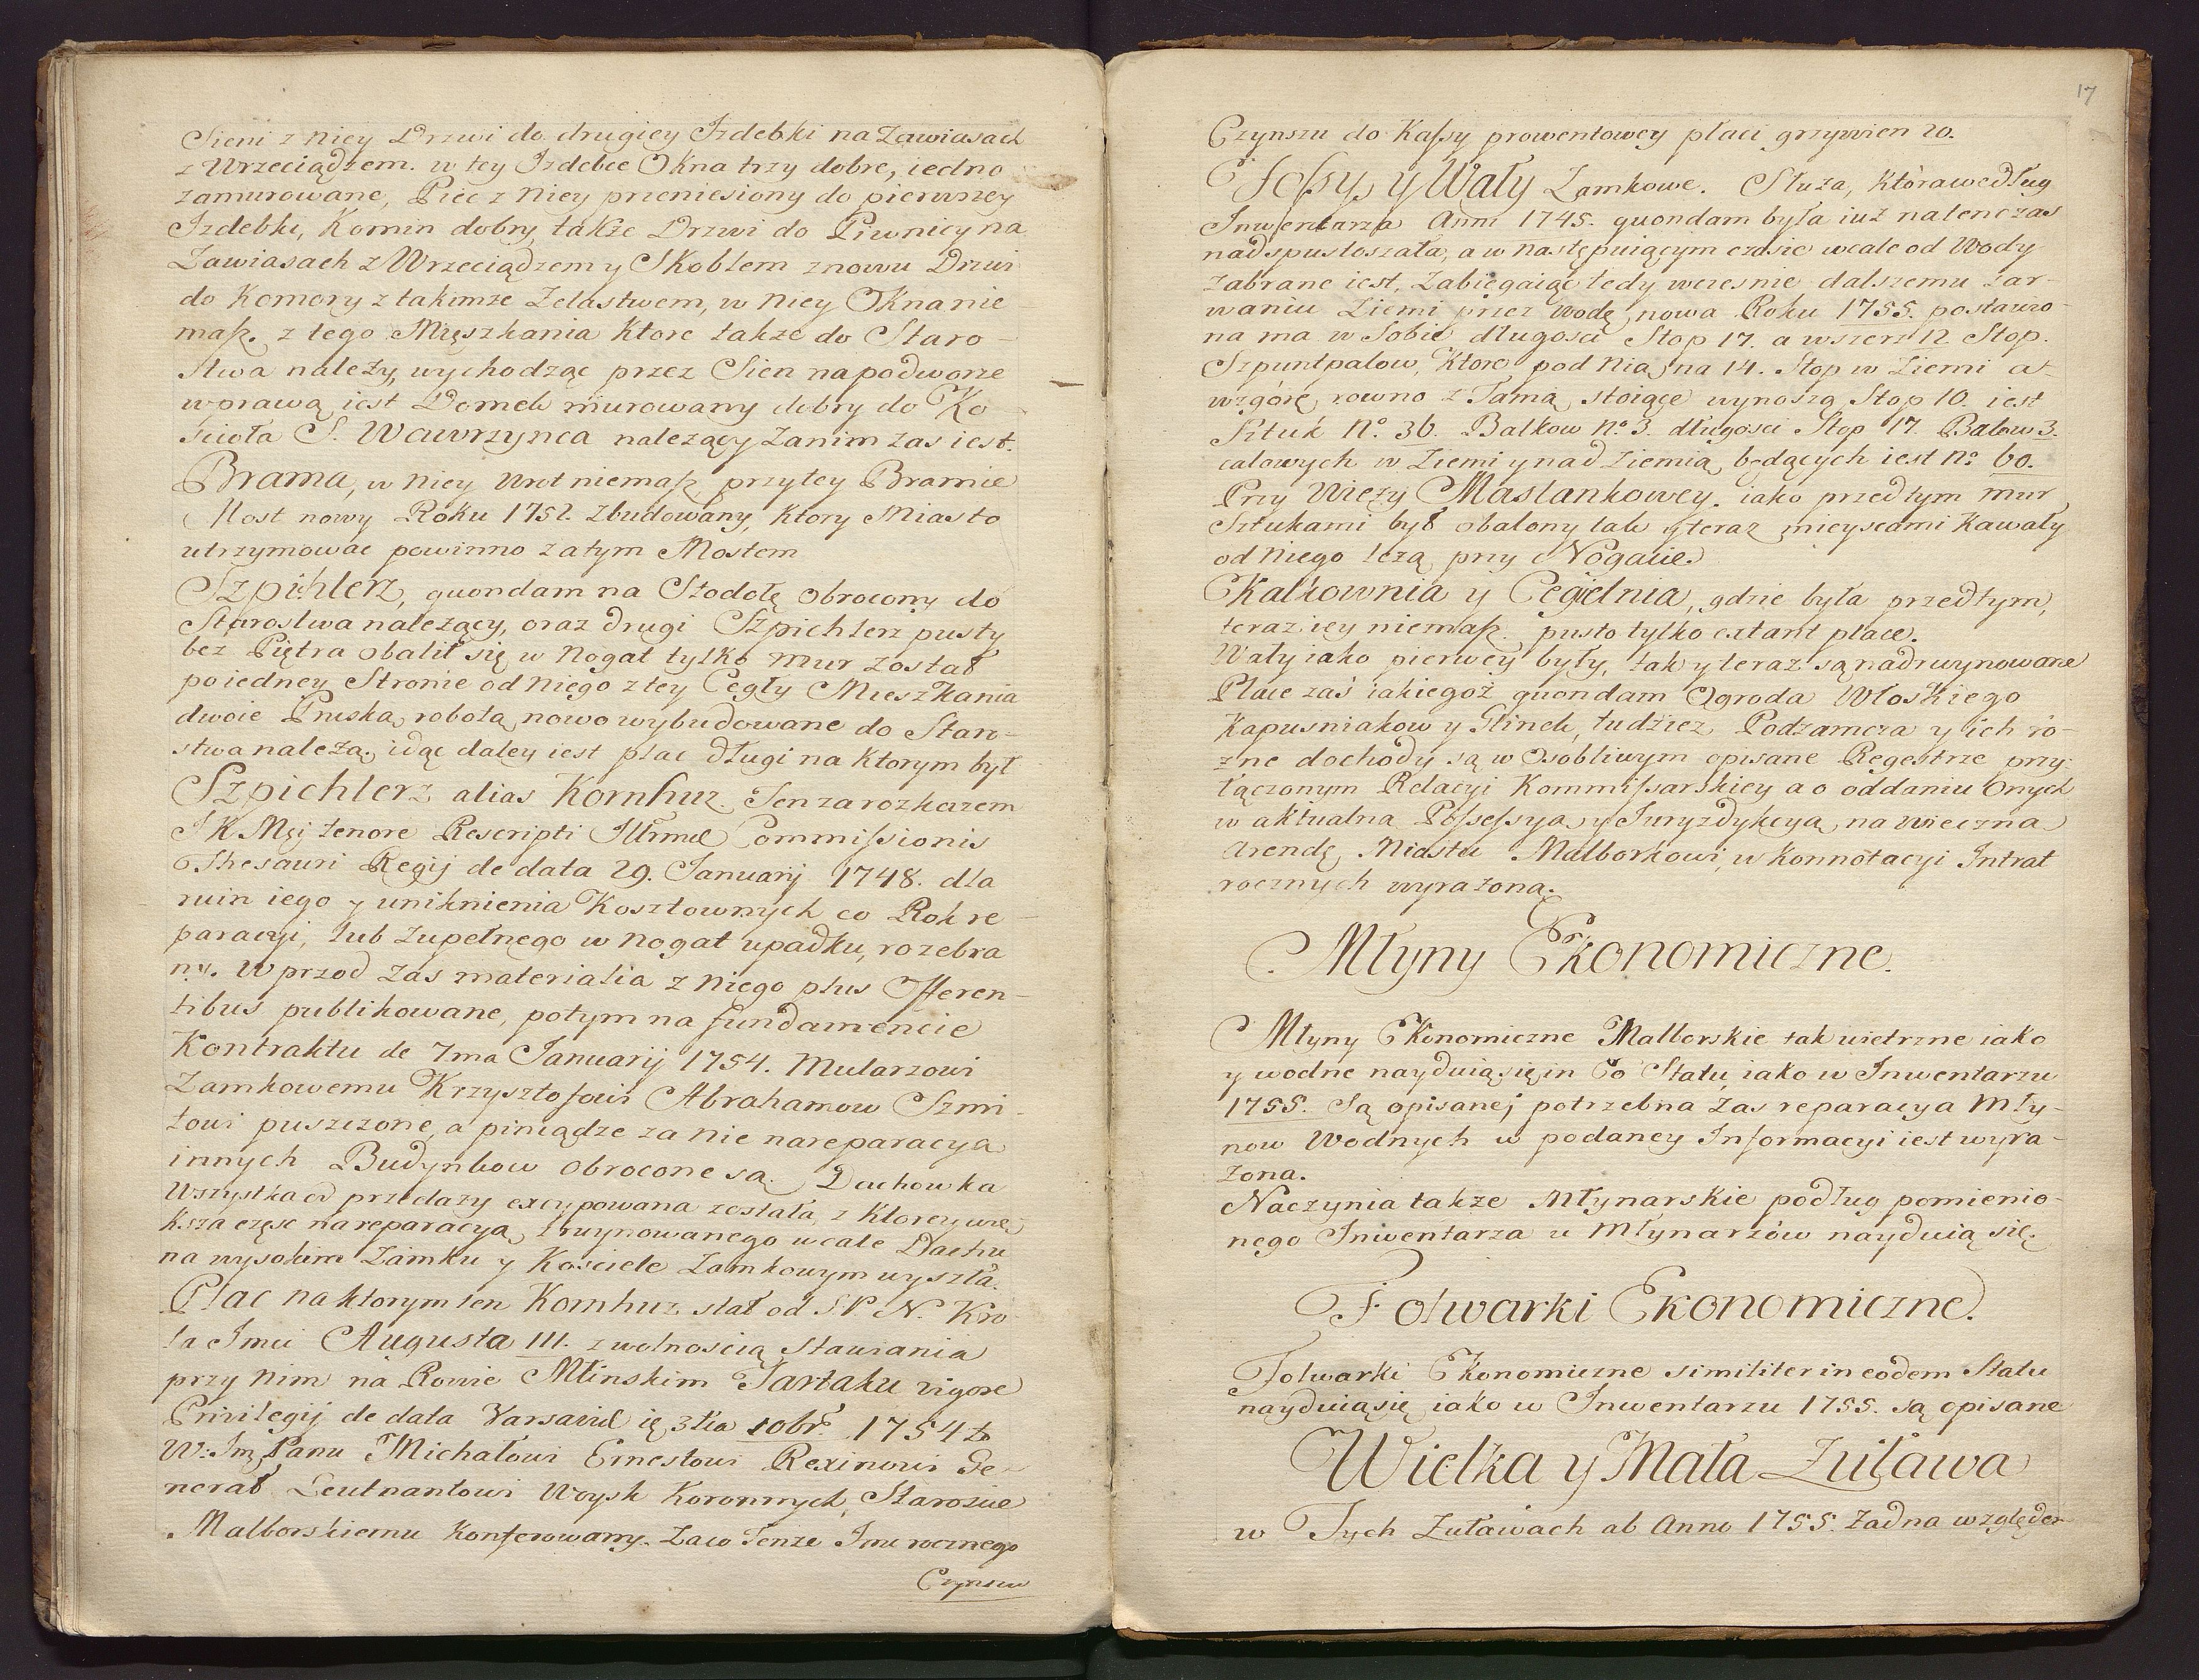 Sieni z niey Drzwi do drugiey Izdebki na Zawiasach
z Wrzeciądzem. w tey Izdebce Okna trzy dobre, iedno
zamurowane, Piec z niey przeniesiony do pierwszey
Izdebki, Komin dobry, także Drzwi do Piwnicy na
Zawiasach z Wrzeciądzem y Skoblem znowu Drzwi
do Komory z takimże Zelastwem, w niey Okna nie
masz. z tego Mięszkania Ktore także do Staro-
stwa należy, wychodząc przez Sien na podworze
w prawą iest Domek murowany dobry do Ko-
scioła S. Wawrzynca należący za nim zas iest.
Brama, w niey Wrot niemasz, przytey Bramie
Most nowy Roku 1752. Zbudowany, ktory Miasto
utrzymować powinno za tym Mostem
Szpichlerz, quondam na Stodołę obrocony do
Starostwa należący, oraz drugi Szpichlerz pusty
bez Piętra obalił się w Nogat tylko mur został
po iedney Stronie od niego z tey Cegły Mieszkania
dwoie Pruską robotą nowo wybudowane do Staro-
stwa należą, idąc daley iest plac długi na ktorym był
Szpichlerz alias Kornhuz. Ten za rozkazem
J K Mći tenore Rescripti Illmæ Commissionis
Thesauri Regij de data 29. Januarij 1748. dla
ruin iego y uniknienia Kosztownych co Rok re-
paracyi, lub Zupełnego w Nogat upadku, rozebra
ny. W przod zas materialia z niego plus Offeren-
tibus publikowane, potym na fundamencie
Kontraktu de 7ma Januarij 1754. Mularzowi
Zamkowemu Krzysztofowi Abrahamow Szmi-
towi puszczone, a piniądze za nie na reparacyą
innych Budynkow obrocone są. Dachowka
Wszystka od przedazy excypowana została, z ktorey wię
ksza częsc na reparacyą zruynowanego wcale Dachu
na wysokim Zamku y Kosciele Zamkowym wyszła.
Plac na ktorym ten Kornhuz stał od S P N. Kro
la Jmci Augusta III. z wolnością Stawiania
przy nim na Rowie Młinskim Tartaku vigore
Privilegij de data Varsaviæ 3tia 10bris 1754to
W: Jmę Panu Michałowi Ernestowi Rexinowi Ge-
nerał Leutnantowi Woysk Koronnych, Staroscie
Malborskiemu Konferowany. Za co Tenze Jmc rocznego
Czynszu
17
Czynszu do Kassy prowentowey płaci grzywien 20.
Fossy y Wały Zamkowe. Sluza, Która według
Inwentarza Anni 1745. quondam była iuż natenczas
nadspustoszała, a w następuiącym czasie wcale od Wody
zabrane iest, Zabiegaiąc tedy wczesnie dalszemu zar-
waniu Ziemi przez wodę, nowa Roku 1755. postawio-
na ma w Sobie długosci Stop 17. a wszerz 12 Stop.
Szpuntpalow, Ktore pod nią na 14. Stop w Ziemi a
wzgórę rowno z Tamą stoiące wynoszą Stop 10. iest
Sztuk No. 36. Balkow No 3. długosci Stop 17. Balow 3.
calowych w Ziemi y nad Ziemią będących iest No 60.
Przy Wieży Maslankowey. iako przedtym mur
Sztukami był obalony tak y teraz mieyscami Kawały
od niego leżą przy Nogacie.
Kalkownia y Cegielnia, gdzie była przedtym,
teraz iey niemasz. pusto tylko extant place.
Wały iako pierwey były, tak y teraz są nadruynowane
Place zaś iakiegoż quondam Ogroda Włoskiego
Kapusniakow y Glinek, tudziez Podzamcza y ich ró-
zne dochody są w osobliwym opisane Regestrze przy-
łączonym Relacyi Kommissarskiey a o oddaniu Onych
w aktualną Possessyą y Juryzdykcyą na wieczną
Arendę Miastu Malborkowi, w Konnotacyi Intrat
rocznych wyrażona.
Młyny Ekonomiczne.
Młyny Ekonomiczne Malborskie tak wietrzne iako
y wodne nayduią się in eo Statu, iako w Inwentarzu
1755. Są opisane, potrzebna zas reparacya Mły-
now Wodnych w podaney Informacyi iest wyra-
żona.
Naczynia także Młynarskie podług pomienio-
nego Inwentarza u Młynarzów nayduią się.
Folwarki Ekonomiczne.
Folwarki Ekonomiczne similiter in eodem Statu
nayduią się iako w Inwentarzu 1755. są opisane
Wielka y Mała Zuława
w Tych Zuławach ab Anno 1755. żadna względem